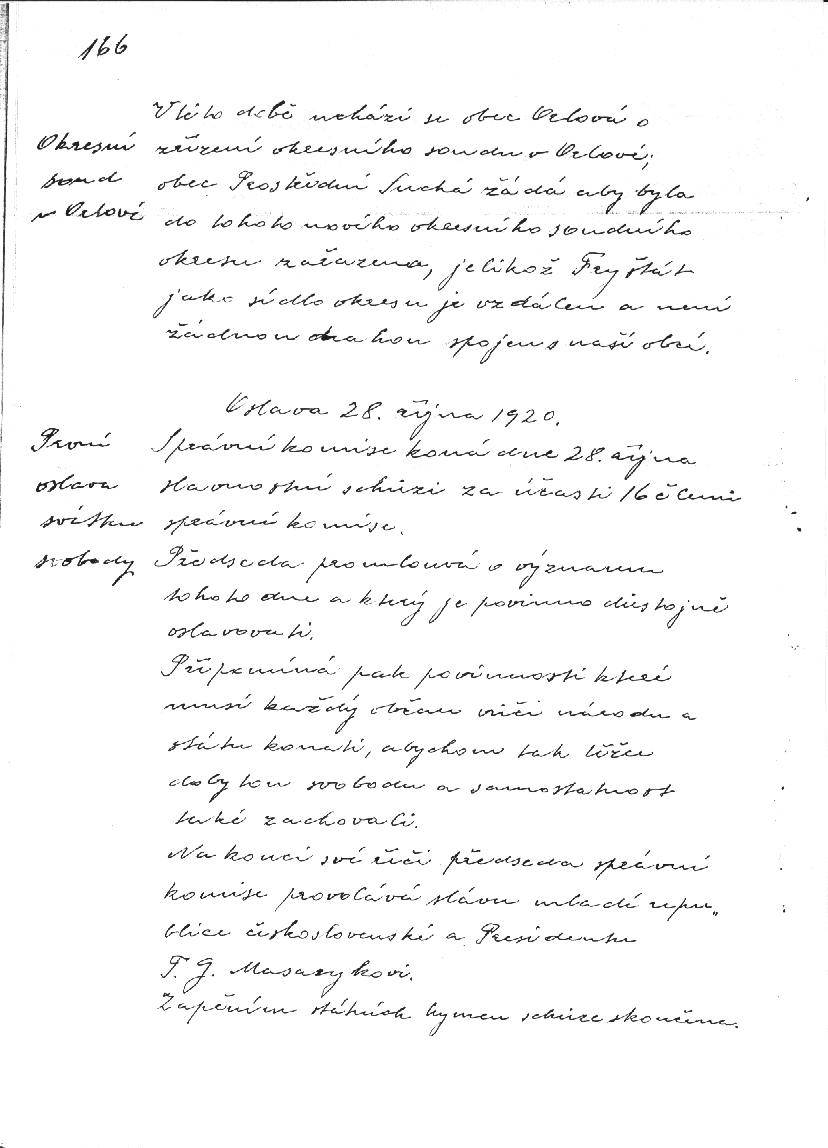 166
V této době uchází se obec Orlová o
zřízení okresního soudu v Orlové;
obec Prostřední Suchá žádá aby byla
do tohoto nového okresního soudního
okresu zařazena, jelikož Fryštát
jako sídlo okresu je vzdálen a není
žádnou drahou spojen s naší obcí.
Okresní
soud
v Orlové
Oslava 28. října 1920.
První
oslava
svátku
svobody
Správní komise koná dne 28. října
slavnostní schůzi za účasti 16 členů
správní komise.
Předseda promlouvá o významu
tohoto dne a který je povinno důstojně
oslavovati.
Připomíná pak povinnosti které
musí každý občan vůči národu a
státu konati, abychom tak těžce
dobytou svobodu a samostatnost
také zachovali.
Na konci své řeči předseda správní
komise provolává slávu mladé repu„
blice československé a Presidentu
T. G. Masarykovi.
Zapěním státních hymen schůze skončena.